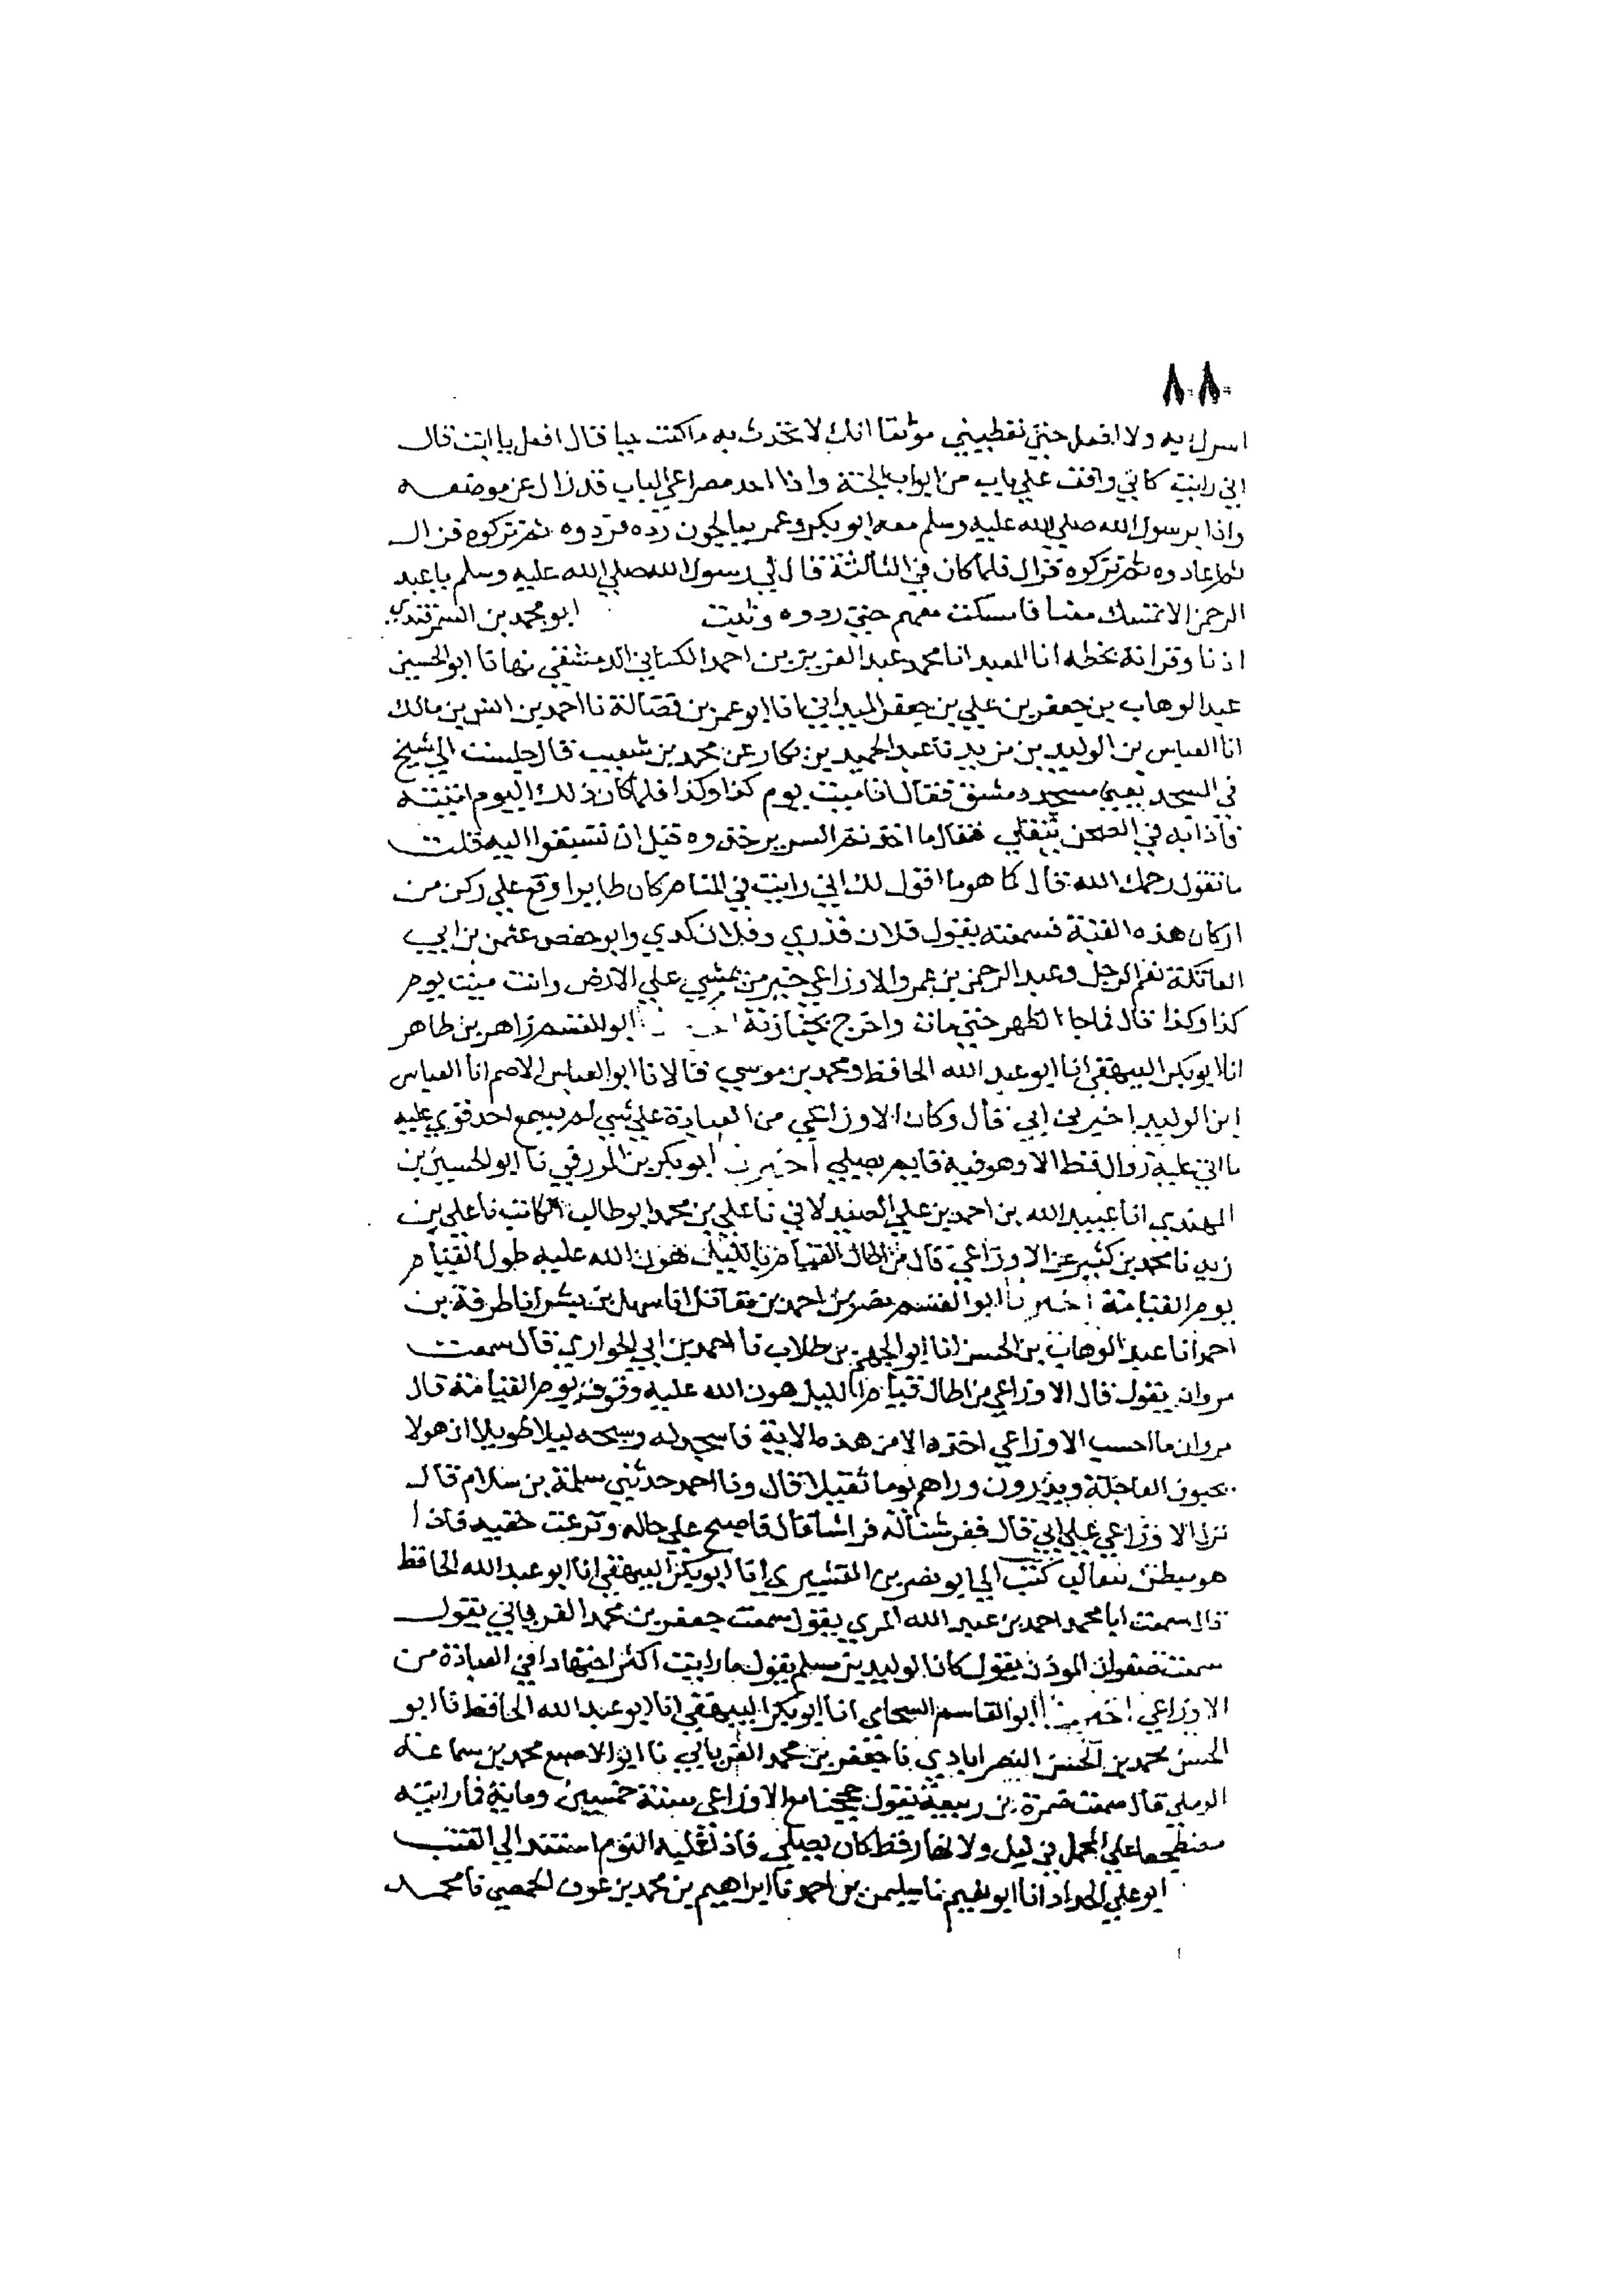 ٨٠٨
اسرك به ولا افعل حتي تعطيني موثقا انك لا تحدث به ما كنت حيا قال افعل يا ابت قال
اني رايت كاني واقف علي باب من ابواب الجنة واذا احد مصراعي الباب قد زال عن موضعه
واذا برسول الله صلي الله عليه وسلم معه ابو بكر وعمر يعالجون رده فردوه ثم تركوه فزال
ثم اعادوه ثم تركوه فزال فلما كان في الثالثة قال لي رسول الله صلي الله عليه وسلم يا عبد
الرحمن الا تمسك معنا فامسكت معهم حتي ردوه وثبت ابو محمد بن السمرقندي
اذنا وقراته بخطه انا ابو محمد عبد العزيز بن احمد الكتاني الدمشقي بها نا ابو الحسين
عبد الوهاب بن جعفر بن علي بن جعفر الميداني نا ابو عمر بن فضالة نا احمد بن انس بن مالك
انا العباس بن الوليد بن مزيد نا عبد الحميد بن بكار عن محمد بن شعيب قال جلست الي شيخ
في المسجد يعني مسجد دمشق فقال انا ميت يوم كذا وكذا فلما كان ذلك اليوم اتيته
فاذا به في الصحن يتفلي فقال ما اخذتم السرير خذوه قبل ان تسبقوا اليه قلت
ما تقول رحمك الله قال كما هو ما اقول لك اني رايت في المنام كان طايرا وقع علي ركن من
اركان هذه القبة فسمعته يقول فلان قدري وفلان كدي وابو حفص عثمن بن ابي
العاتكة نعم الرجل وعبد الرحمن بن عمرو الاوزاعي خير من يمشي علي الارض وانت ميت يوم
كذا وكذا قال فما جا الظهر حتي مات واخرج بجنازته ابو القسم زاهر بن طاهر
انا ابو بكر البيهقي انا ابو عبد الله الحافظ ومحمد بن موسي قالا نا ابو العباس الاصم انا العباس
ابن الوليد اخبرني ابي قال وكان الاوزاعي من العبادة علي شي لم يسمع احد قوي عليه
ما اتي عليه زوال قط الا وهو فيه قايم يصلي اخبرنا ابو بكر بن المزرفي نا ابو الحسين بن
المهتدي انا عبيد الله بن احمد بن علي الصيدلاني نا علي بن محمد ابو طالب الكاتب نا علي بن
زيد نا محمد بن كثير عن الاوزاعي قال من اطال القيام بالليل هون الله عليه طول القيام
يوم القيامة اخبرنا ابو القسم نصر بن احمد بن مقاتل انا سهل بن بشر انا طرفة بن
احمد انا عبد الوهاب بن الحسن انا ابو الجهم بن طلاب نا احمد بن ابي الحواري قال سمعت
مروان يقول قال الاوزاعي من اطال قيام الليل هون الله عليه وقوف يوم القيامة قال
مروان ما احسب الاوزاعي اخذه الا من هذه الاية فاسجد له وسبحه ليلا طويلا ان هولا
يحبون العاجلة ويذرون وراهم يوما ثقيلا قال ونا احمد حدثني سلمة بن سلام قال
نزل الاوزاعي علي ابي قال ففرشنا له فراشا قال فاصبح علي حاله ونزعت خفيه فاذا
هو مبطن بثعالب كتب الي ابو نصر بن القشيري انا ابو بكر البيهقي انا ابو عبد الله الحافظ
قال سمعت ابا محمد احمد بن عبد الله المزني يقول سمعت جعفر بن محمد الفريابي يقول
سمعت صفوان الموذن يقول كان الوليد بن مسلم يقول ما رايت اكثر اجتهادا في العبادة من
الاوزاعي اخبرنا ابو القاسم الشحامي انا ابو بكر البيهقي انا ابو عبد الله الحافظ نا ابو
الحسن محمد بن الحسن النصراباذي نا جعفر بن محمد الفريابي نا ابو الاصبع محمد بن سماعة
الرملي قال سمعت ضمرة بن ربيعة يقول حججنا مع الاوزاعي سنة خمسين وماية فما رايته
مضطجعا علي المحمل في ليل ولا نهار قط كان يصلي فاذا غلبه النوم استند الي القتب
ابو علي الحداد انا ابو نعيم نا سليمن بن احمد نا ابراهيم بن محمد بن عون الحمصي نا محمد